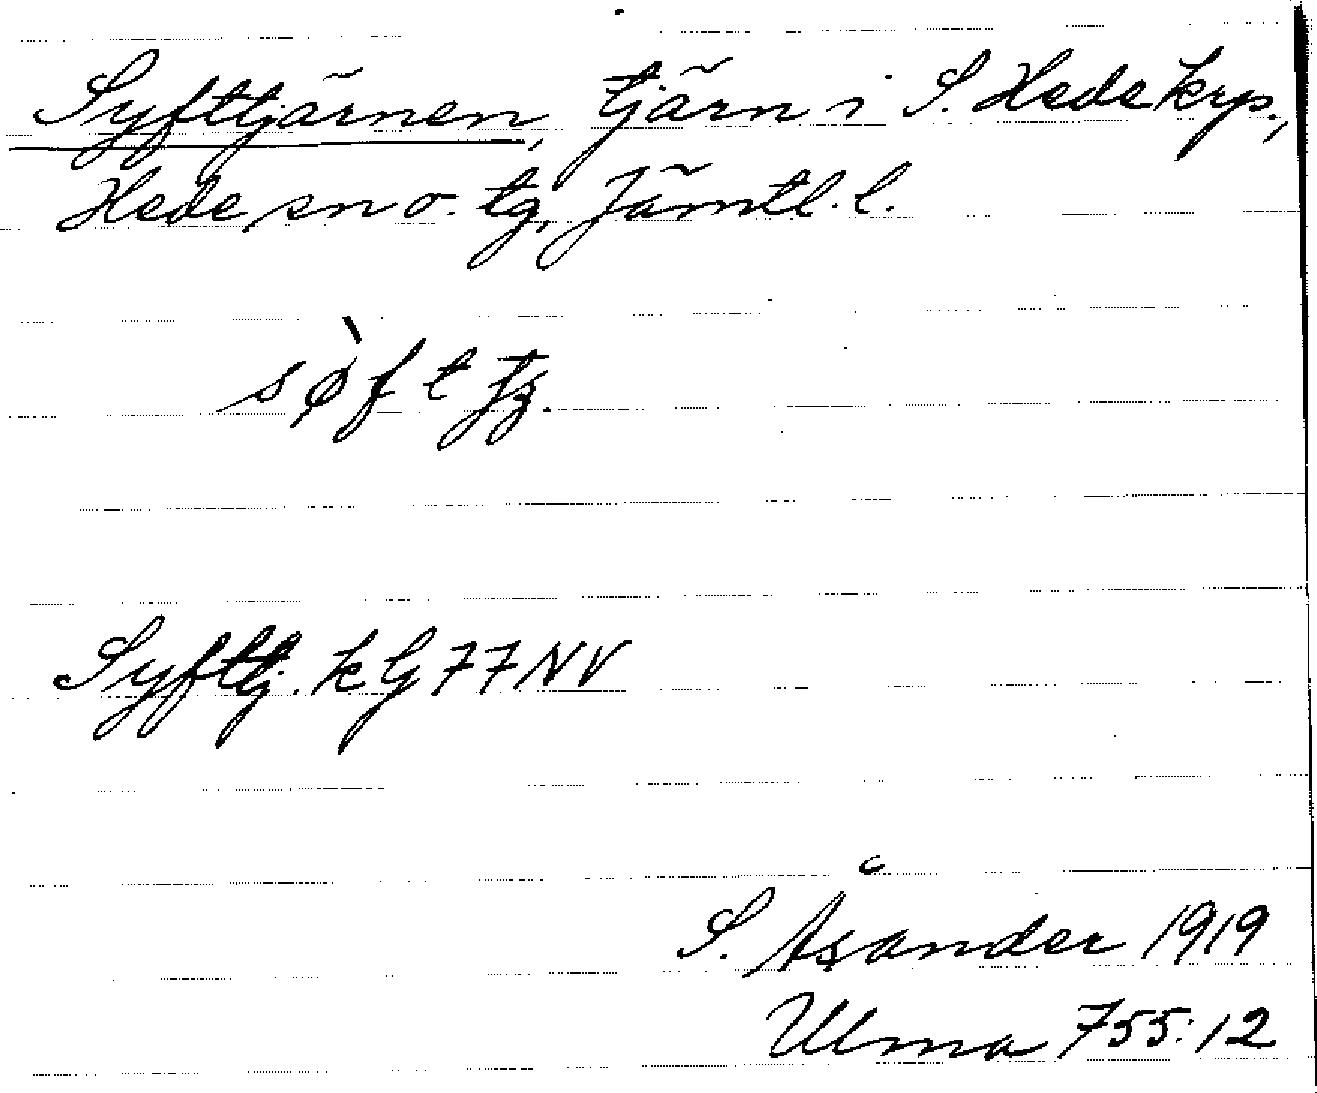 Syfttjärnen, tjärn i S. Hede krp.,
Hede sn o. tg, Jämtl. l.
sø̀f t tj.
Syfttj. k G 77 NV
S. Åsander 1919
Ulma 755:12